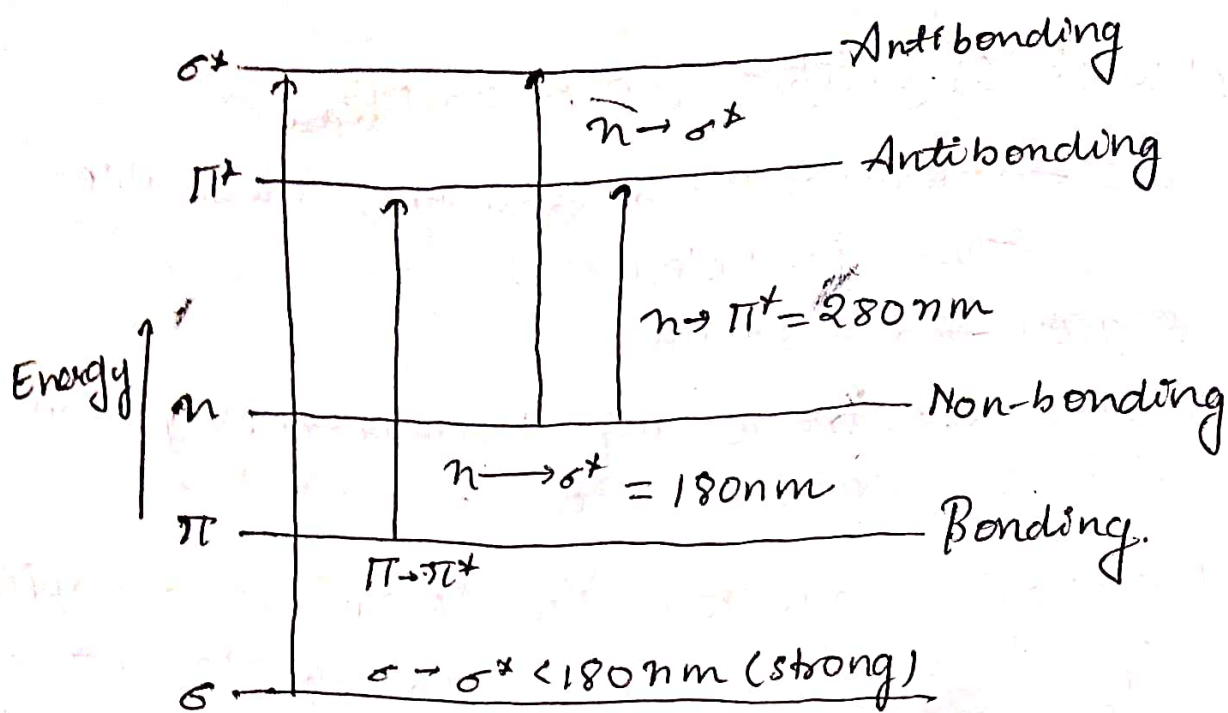 σ* Antibonding
n → σ*
π* Antibonding
n → π* = 280 nm
Energy
n Non-bonding
n → σ* = 180nm
π Bonding.
π → π*
σ → σ* < 180 nm (strong)
σ